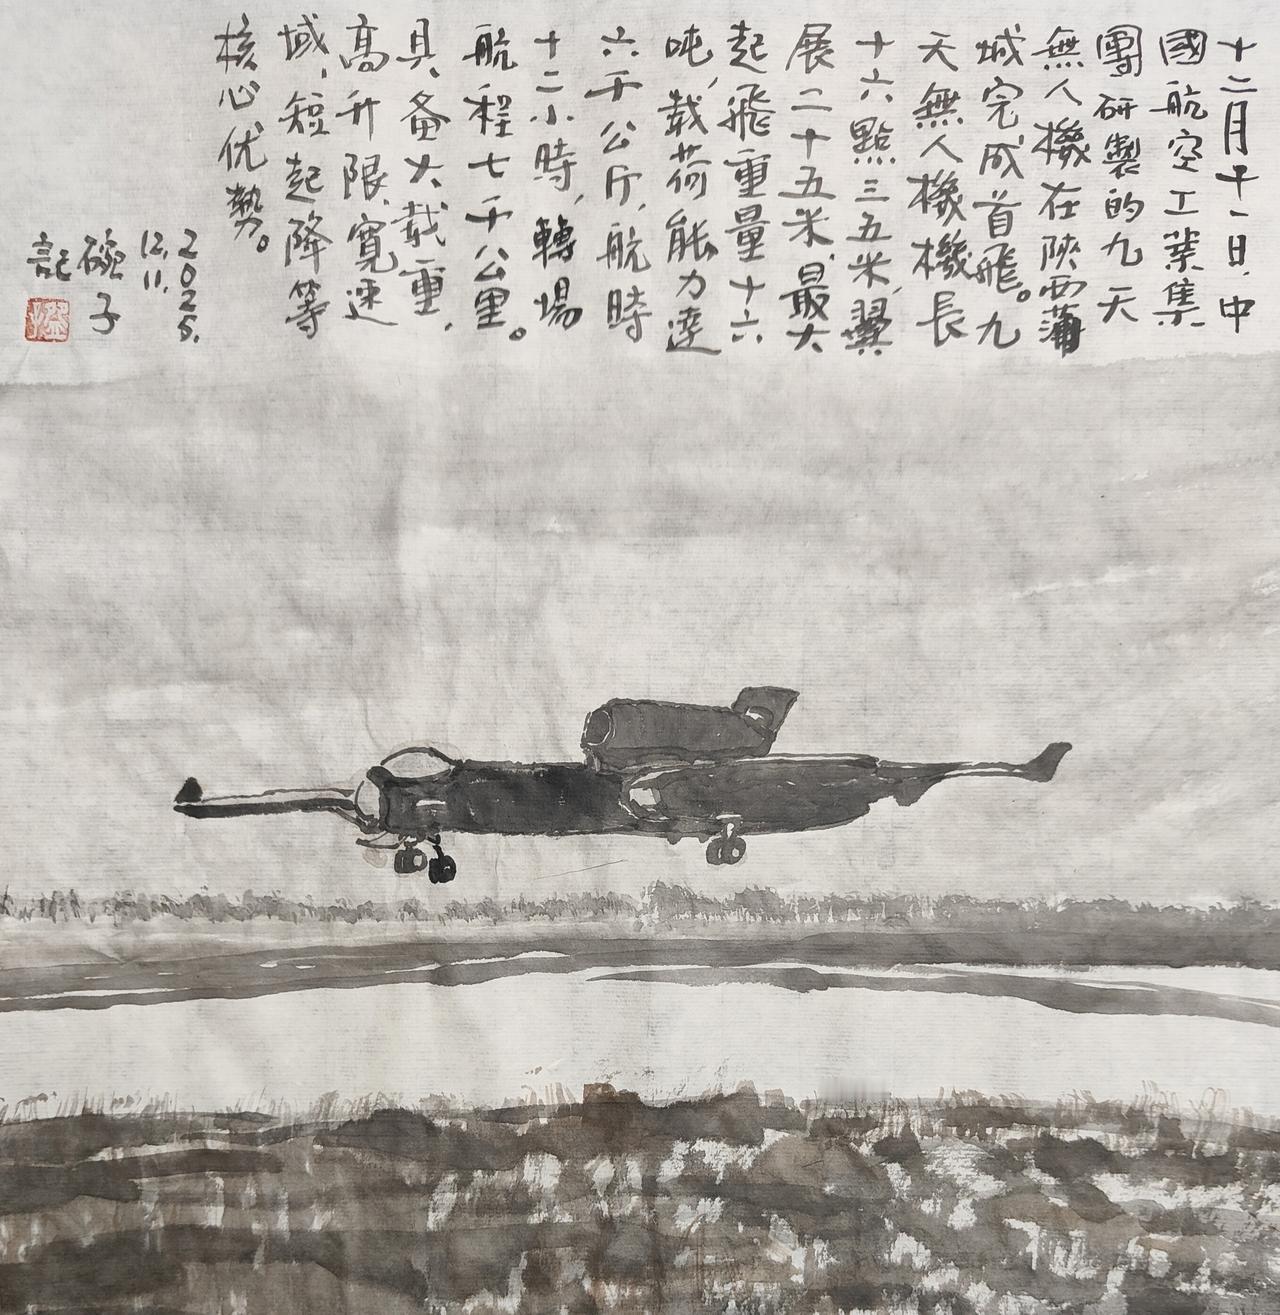 十二月十一日，中
國航空工業集
團研製的九天
無人機在陝西蒲
城完成首飛。九
天無人機機長
十六點三五米，翼
展二十五米，最大
起飛重量十六
吨，載荷能力達
六千公斤，航時
十二小時，轉場
航程七千公里。
具备大載重，
高升限、寬速
域，短起降等
核心优勢。
2025.
12.11.
子
記